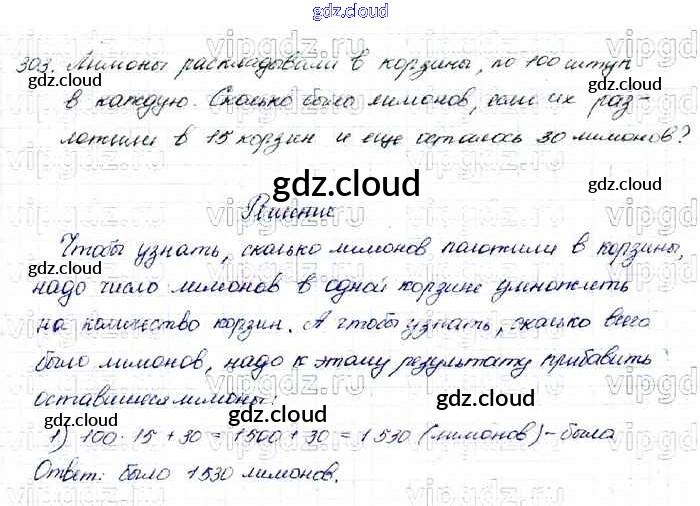 gdz.cloud
303. Лимоны раскладывали в корзины, по 100 штук
в каждую. Сколько было лимонов, если их раз-
ложили в 15 корзин и еще осталось 30 лимонов?
gdz.cloud
Решение
Чтобы узнать, сколько лимонов положили в корзины,
надо число лимонов в одной корзине умножить
на количество корзин. А чтобы узнать, сколько всего
было лимонов, надо к этому результату прибавить
оставшиеся лимоны:
1) 100 · 15 + 30 = 1500 + 30 = 1530 (лимонов) - было
Ответ: было 1530 лимонов.